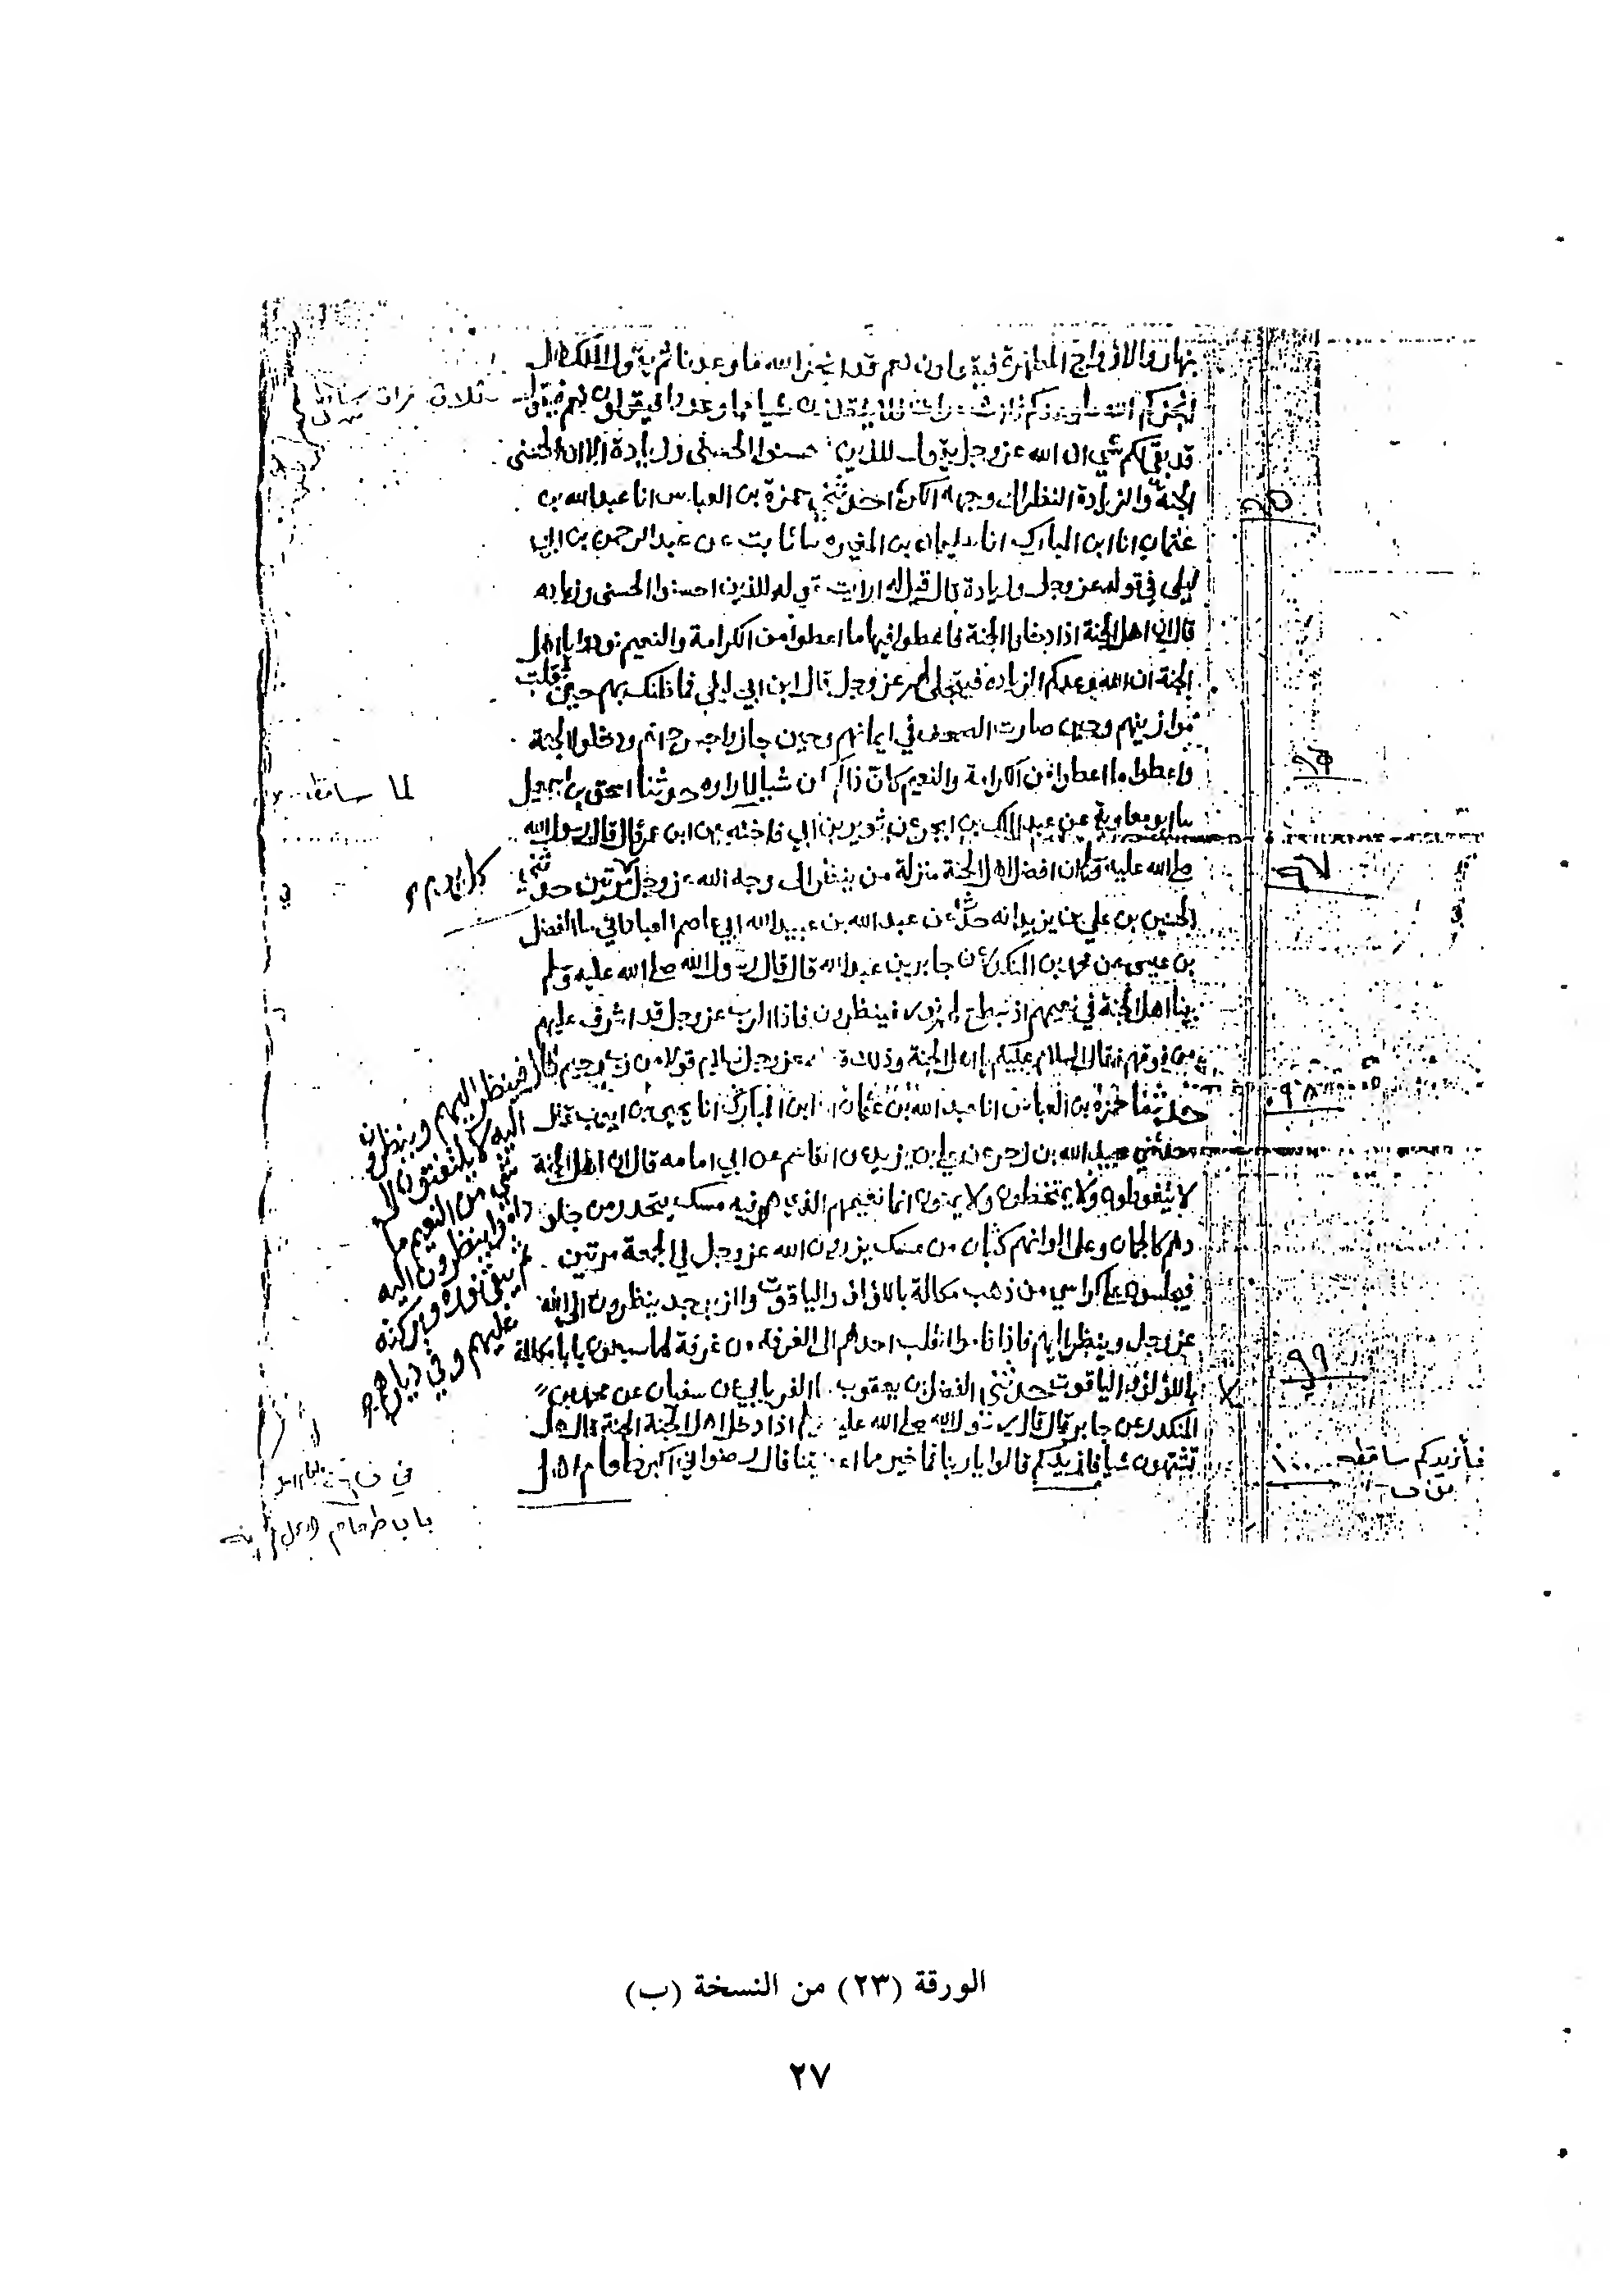 والازواج المطهرة فيقولون نعم قد انجز الله ما وعدنا ثم يقول الملك هل
انجزكم الله ما وعدكم ثلاث مرات فلا يفقدون شيا مما وعدوا فيقولون نعم فيقول
قد بقي لكم شي ان الله عز وجل يقول للذين احسنوا الحسنى وزيادة الا ان الحسنى
الجنة والزيادة النظر الى وجه الله حدثني حمزة بن العباس انا عبد الله بن
عثمان انا ابن المبارك انا سليمان بن المغيره عن ثابت عن عبد الرحمن بن ابي
ليلى في قوله عز وجل وزيادة قال قيل له ارايت قوله للذين احسنوا الحسنى وزياده
قال ان اهل الجنة اذا دخلوا الجنة فاعطوا فيها ما اعطوا من الكرامة والنعيم نودوا يا اهل
الجنة ان الله وعدكم الزياده فيتجلى لهم عز وجل قال ابن ابي ليلى فما ظنك بهم حين ثقلت
موازينهم وحين صارت الصحف في ايمانهم وحين جازوا جسر جهنم ودخلوا الجنة
واعطوا ما اعطوا من الكرامة والنعيم كان ذلك شيا لم يروه حدثنا اسحق بن اسمعيل
نا ابو معاوية عن عبد الملك بن ابجر عن ثوير بن ابي فاخته عن ابن عمر قال قال رسول الله
صلى الله عليه وسلم ان افضل اهل الجنة منزلة من ينظر الى وجه الله عز وجل مرتين حدثني
الحسين بن علي بن يزيد انه حدث عن عبد الله بن عبيد الله ابي عاصم العباداني نا الفضل
بن عيسى عن محمد بن المنكدر عن جابر بن عبد الله قال قال رسول الله صلى الله عليه وسلم
بينا اهل الجنة في نعيمهم اذ سطع لهم نور فينظرون فاذا الرب عز وجل قد اشرف عليهم
من فوقهم فقال السلام عليكم يا اهل الجنة وذلك قوله عز وجل سلام قولا من رب رحيم قال فينظر اليهم وينظرون
اليه لا يلتفتون الى
شي من النعيم ما
داموا ينظرون اليه
ثم يبقى نوره وبركته
عليهم وفي ديارهم
حدثنا حمزة بن العباس انا عبد الله بن عثمان انا ابن المبارك انا يحيى بن ايوب قال
حدثني عبيد الله بن زحر عن علي بن يزيد عن القاسم عن ابي امامه قال ان اهل الجنة
لا يتغوطون ولا يتمخطون ولا يمنون انما نعيمهم الذي هم فيه مسك يتحدر من جلو
دهم كالجمان وعلى ابوابهم كثبان من مسك يزورون الله عز وجل في الجمعة مرتين
فيجلسون على كراسي من ذهب مكللة باللؤلؤ والياقوت والزبرجد ينظرون الى الله
عز وجل وينظر اليهم فاذا قاموا انقلب احدهم الى الغرفة من غرفة لها سبعون بابا مكللة
باللؤلؤ والياقوت حدثني الفضل بن يعقوب نا الفريابي عن سفيان عن محمد بن
المنكدر عن جابر قال قال رسول الله صلى الله عليه وسلم اذا دخل اهل الجنة الجنة قال هل
تشتهون شيا فازيدكم قالوا يا ربنا فما خير مما اعطيتنا قال رضواني اكبر طعام اهل
ثلاث مرات
٩٥
٩٦
لما ساقطة
٩٧
٩٨
٩٩
١٠٠
فأزيدكم ساقطه
من
باب طعام اهل
الورقة (٢٣) من النسخة (ب)
٢٧